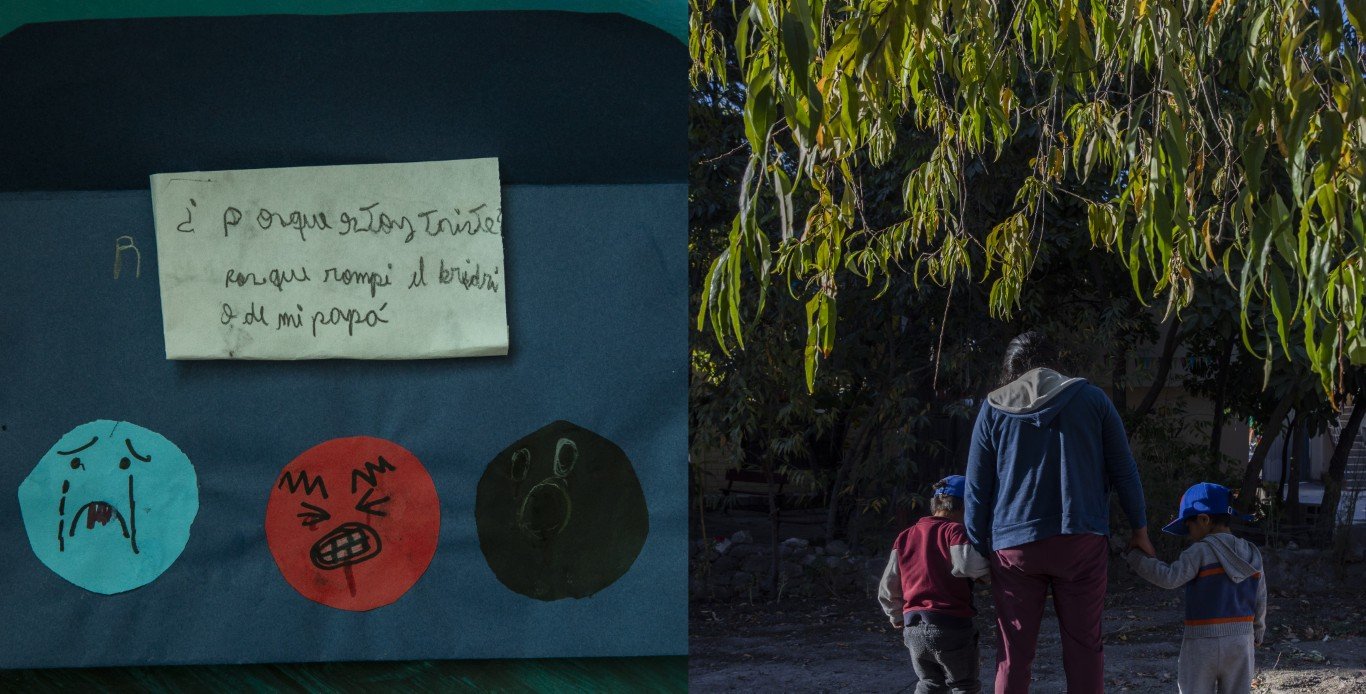 ¿Porque estoy triste?
R Porque rompi el bridri
o de mi papá